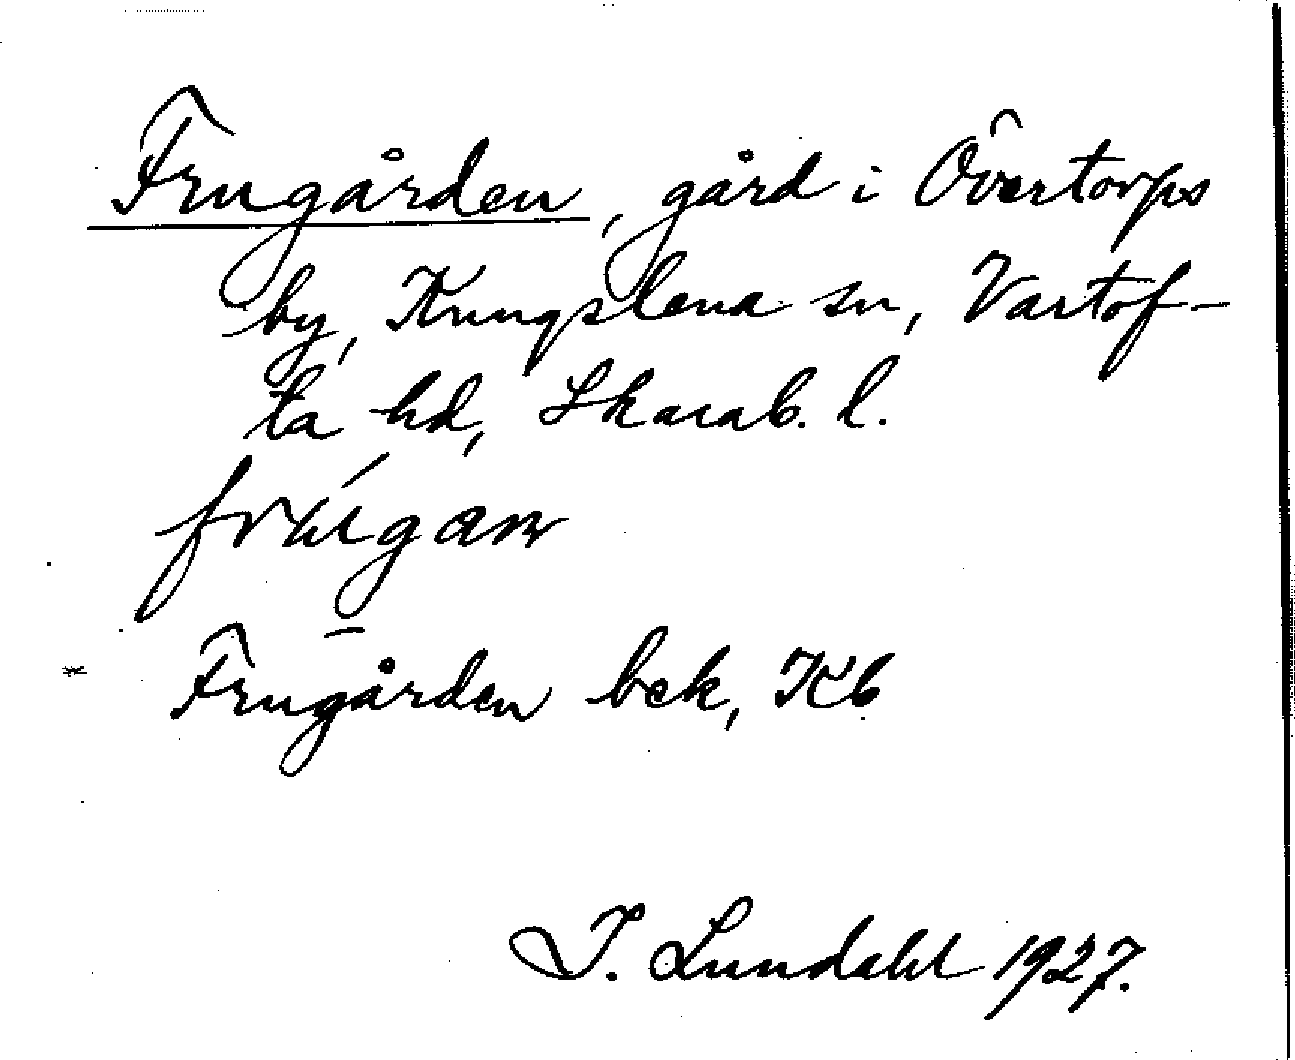 Frugården, gård i Övertorps
by, Kungslena sn, Vartof-
ta hd, Skarab. l.
Frugården bek, Kb
I. Lundahl 1927.